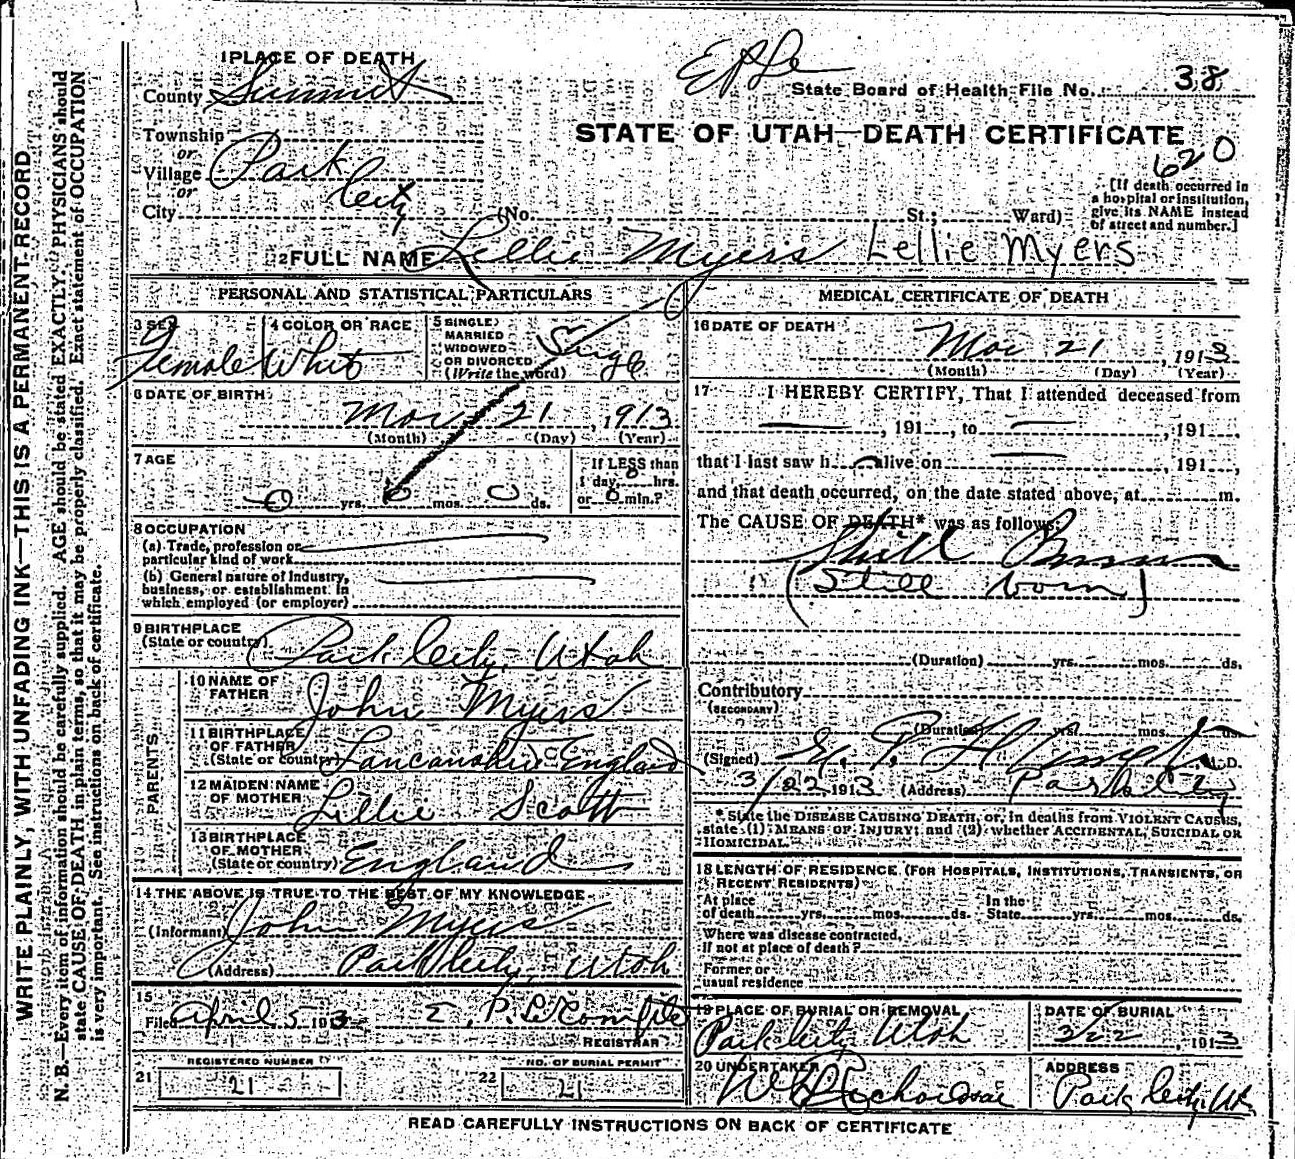 WRITE PLAINLY, WITH UNFADING INK—THIS IS A PERMANENT RECORD
N. B.—Every item of information should be carefully supplied. AGE should be stated EXACTLY. PHYSICIANS should
state CAUSE OF DEATH in plain terms, so that it may be properly classified. Exact statement of OCCUPATION
is very important. See instructions on back of certificate.
1 PLACE OF DEATH
County Summit
State Board of Health File No. 38
Township
or
Village Park City
or
City (No. , St.; Ward)
STATE OF UTAH—DEATH CERTIFICATE
620
[If death occurred in
a hospital or institution,
give its NAME instead
of street and number.]
2 FULL NAME Lellie Myers Lellie Myers
PERSONAL AND STATISTICAL PARTICULARS
3 SEX Female
4 COLOR OR RACE Whit
5 SINGLE,
MARRIED
WIDOWED
OR DIVORCED
(Write the word)
6 DATE OF BIRTH
Mar 21, 1913
(Month) (Day) (Year)
7 AGE
0 yrs. 0 mos. 0 ds.
If LESS than
1 day, 0 hrs.
or 0 min.?
8 OCCUPATION
(a) Trade, profession or
particular kind of work
(b) General nature of Industry,
business, or establishment in
which employed (or employer)
9 BIRTHPLACE
(State or country) Park City, Utah
PARENTS
10 NAME OF
FATHER John Myers
11 BIRTHPLACE
OF FATHER
(State or country) England
12 MAIDEN NAME
OF MOTHER Lellie Scott
13 BIRTHPLACE
OF MOTHER
(State or country) England
14 THE ABOVE IS TRUE TO THE BEST OF MY KNOWLEDGE
(Informant) John Myers
(Address) Park City, Utah
15
Filed April 5 1913 E. P. LeCompte
REGISTRAR
REGISTERED NUMBER
21 21
NO. OF BURIAL PERMIT
22 21
MEDICAL CERTIFICATE OF DEATH
16 DATE OF DEATH
Mar 21, 1913
(Month) (Day) (Year)
17 I HEREBY CERTIFY, That I attended deceased from
, 191 , to , 191 ,
that I last saw h alive on , 191 ,
and that death occurred, on the date stated above, at m.
The CAUSE OF DEATH* was as follows:
Still Born
(Still born)
(Duration) yrs. mos. ds.
Contributory
(SECONDARY)
(Duration) yrs. mos. ds.
(Signed) M. D.
3/22 1913 (Address) Park City
* State the DISEASE CAUSING DEATH, or, in deaths from VIOLENT CAUSES,
state (1) MEANS OF INJURY; and (2) whether ACCIDENTAL, SUICIDAL OR
HOMICIDAL.
18 LENGTH OF RESIDENCE (FOR HOSPITALS, INSTITUTIONS, TRANSIENTS, OR
RECENT RESIDENTS)
At place In the
of death yrs. mos. ds. State yrs. mos. ds.
Where was disease contracted,
if not at place of death?
Former or
usual residence
19 PLACE OF BURIAL OR REMOVAL
Park City Utah
DATE OF BURIAL
3/22, 1913
20 UNDERTAKER
ADDRESS
Park City, Ut
READ CAREFULLY INSTRUCTIONS ON BACK OF CERTIFICATE